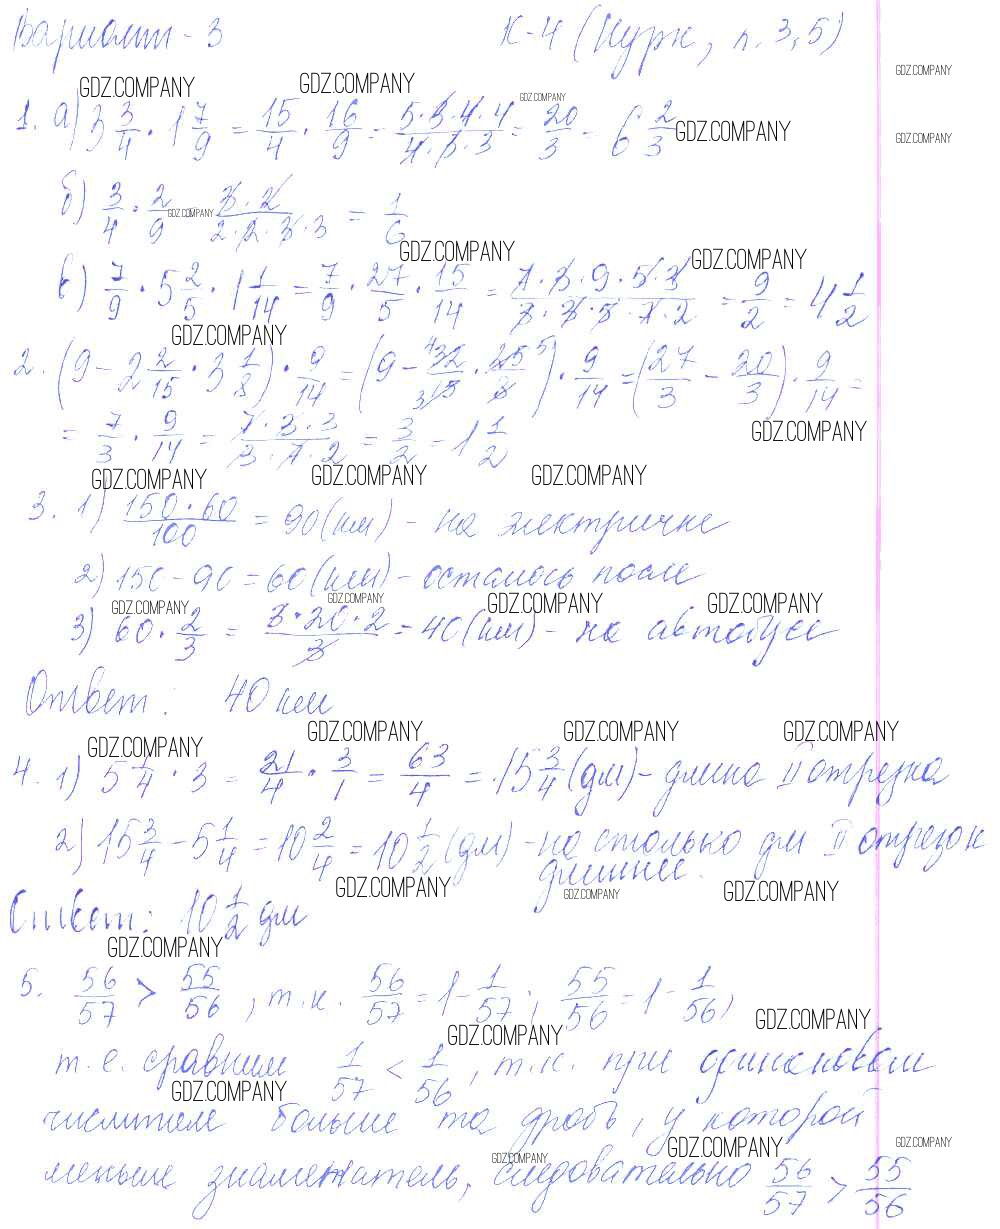 Вариант - 3 К-4 (Нурк, п. 3,5)
GDZ.COMPANY GDZ.COMPANY GDZ.COMPANY GDZ.COMPANY
1. а) 3 3/4 · 1 7/9 = 15/4 · 16/9 = 5·3·4·4/4·3·3 = 20/3 = 6 2/3 GDZ.COMPANY GDZ.COMPANY
б) 3/4 · 2/9 GDZ.COMPANY 3·2/2·2·3·3 = 1/6
GDZ.COMPANY GDZ.COMPANY
в) 7/9 · 5 2/5 · 1 1/14 = 7/9 · 27/5 · 15/14 = 7·3·9·5·3/3·3·5·7·2 = 9/2 = 4 1/2
GDZ.COMPANY
2. (9 - 2 2/15 · 3 1/8) · 9/14 = (9 - 32/15 · 25/8) · 9/14 = (27/3 - 20/3) · 9/14 =
= 7/3 · 9/14 = 7·3·3/3·7·2 = 3/2 = 1 1/2 GDZ.COMPANY
GDZ.COMPANY GDZ.COMPANY GDZ.COMPANY
3. 1) 150·60/100 = 90 (км) - на электричке
2) 150 - 90 = 60 (км) - осталось после
GDZ.COMPANY GDZ.COMPANY GDZ.COMPANY GDZ.COMPANY
3) 60 · 2/3 = 3·20·2/3 = 40 (км) - на автобусе
Ответ: 40 км
GDZ.COMPANY GDZ.COMPANY GDZ.COMPANY GDZ.COMPANY
4. 1) 5 1/4 · 3 = 21/4 · 3/1 = 63/4 = 15 3/4 (дм) - длина II отрезка
2) 15 3/4 - 5 1/4 = 10 2/4 = 10 1/2 (дм) - на столько дм II отрезок
длиннее.
GDZ.COMPANY GDZ.COMPANY GDZ.COMPANY
Ответ: 10 1/2 дм
GDZ.COMPANY
5. 56/57 > 55/56, т.к. 56/57 = 1 - 1/57; 55/56 = 1 - 1/56,
GDZ.COMPANY GDZ.COMPANY
т.е. сравним 1/57 < 1/56, т.к. при одинаковом
GDZ.COMPANY
числителе больше та дробь, у которой
GDZ.COMPANY GDZ.COMPANY GDZ.COMPANY
меньше знаменатель, следовательно 56/57 > 55/56